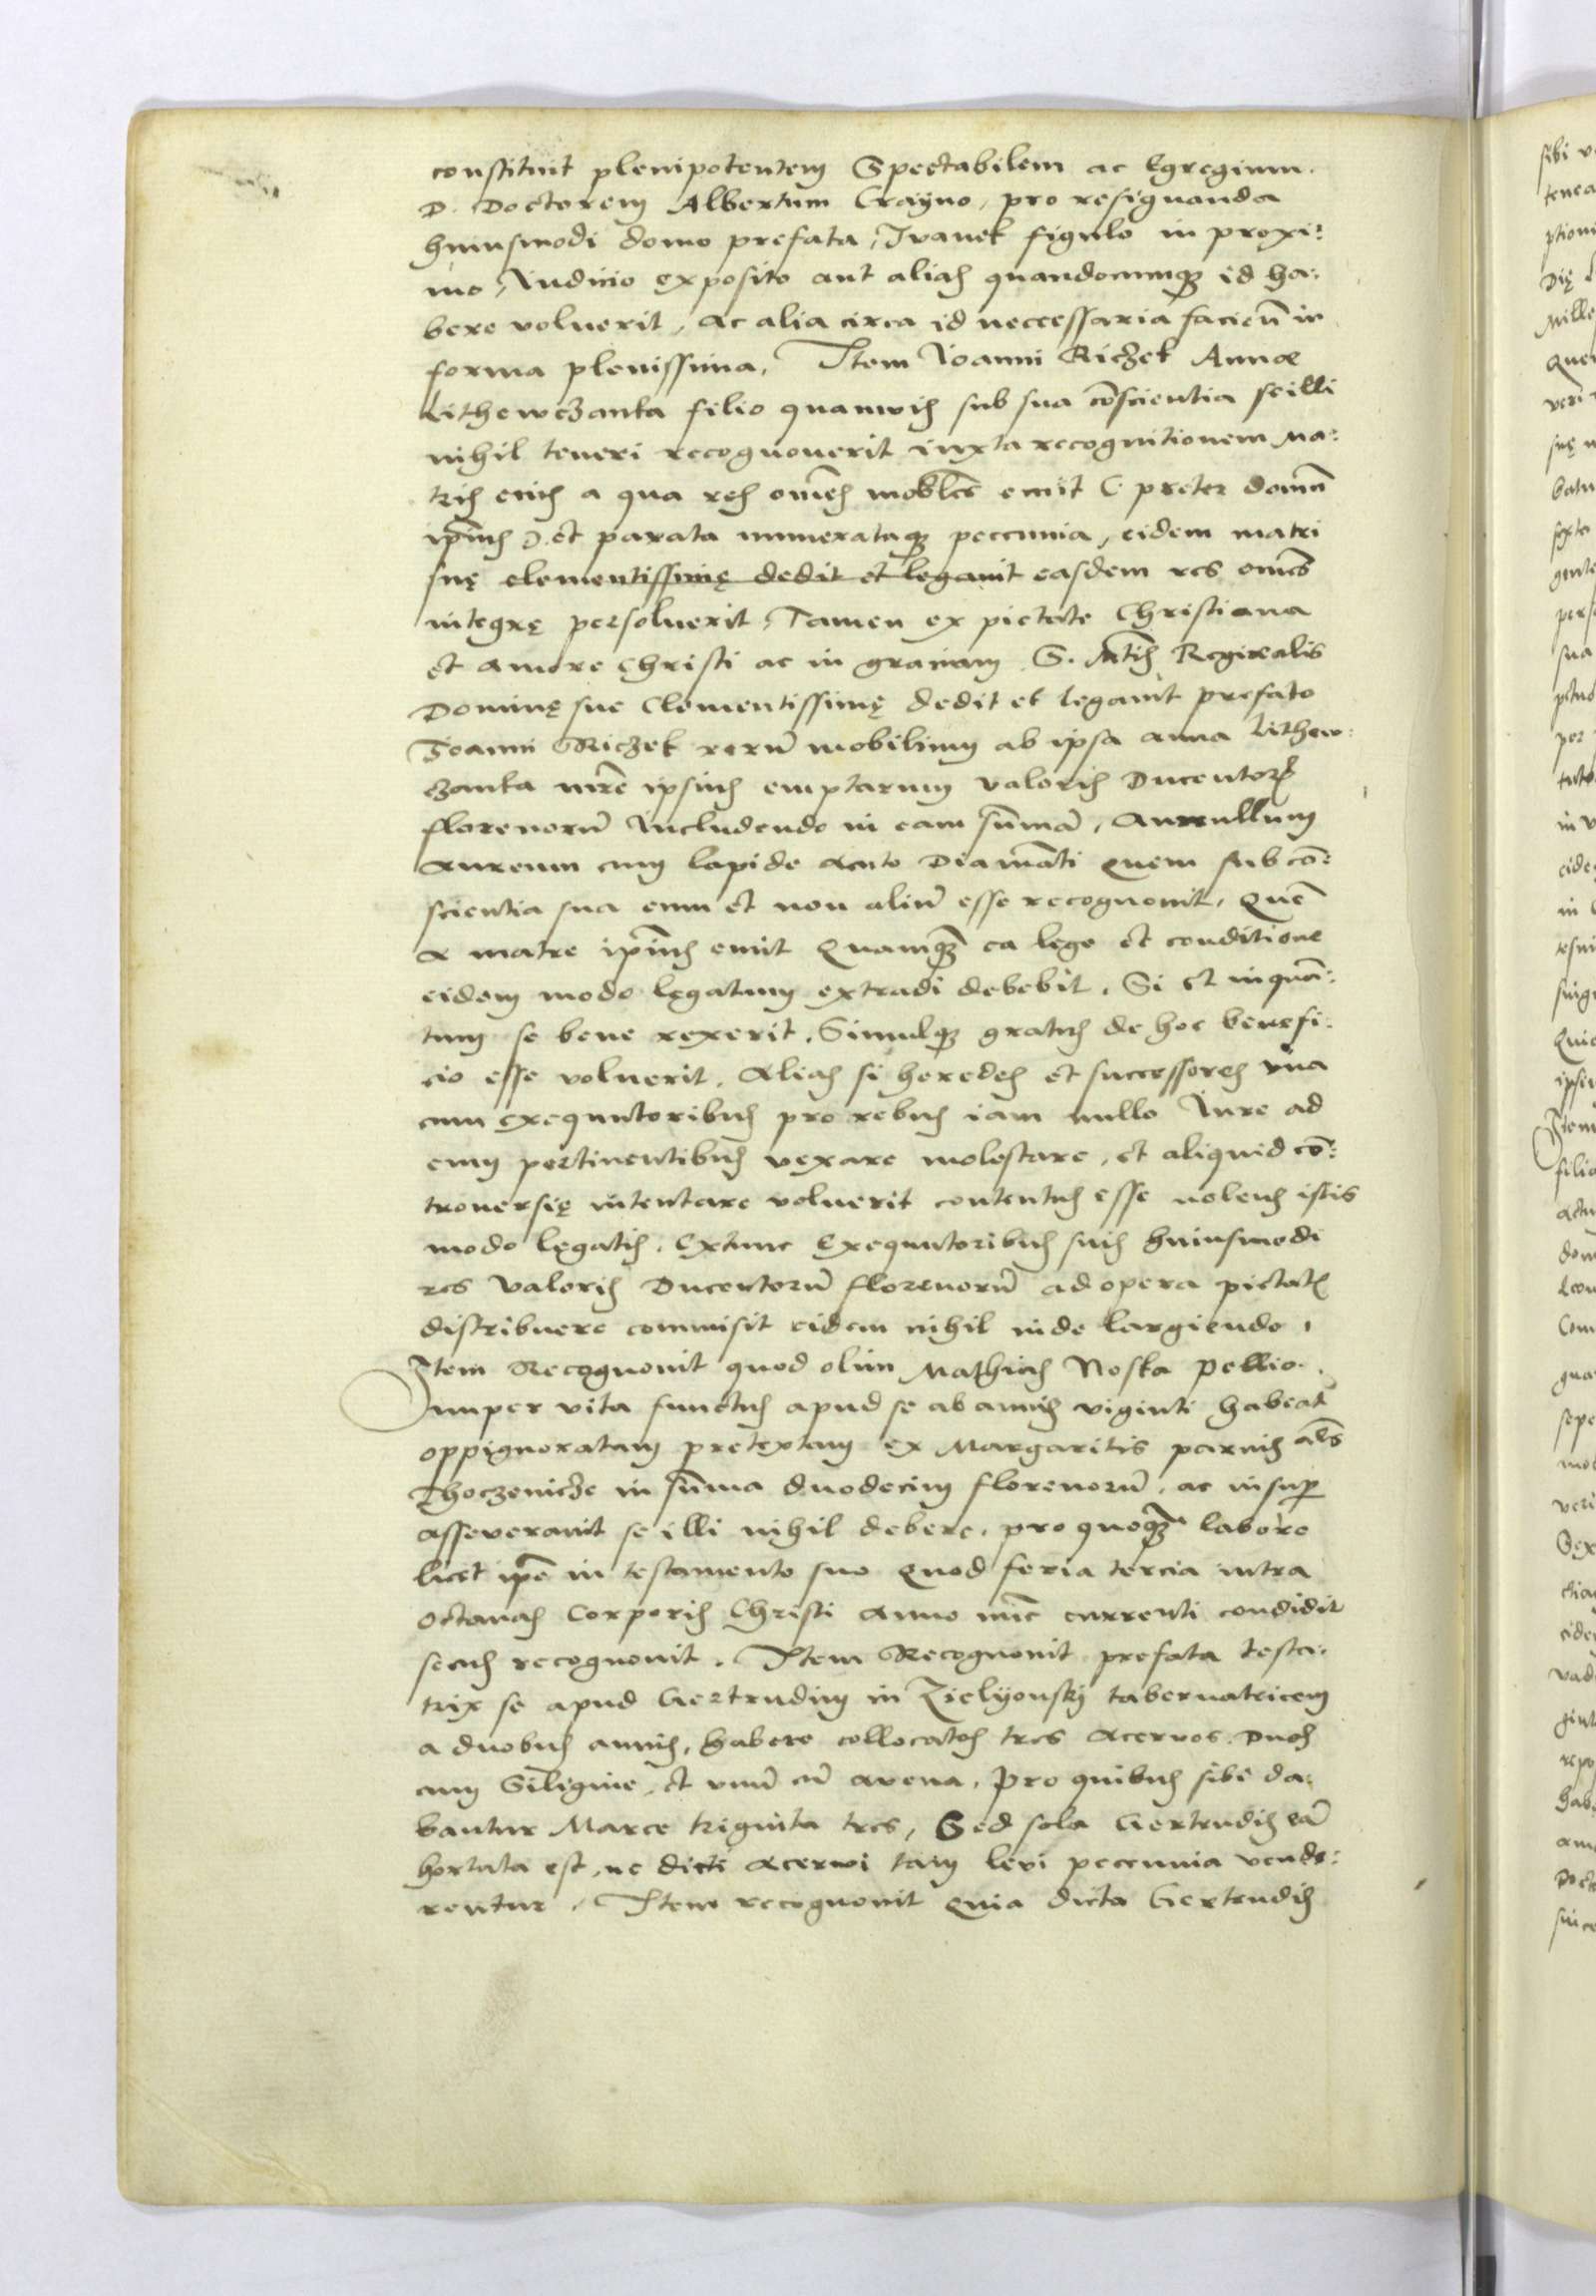 constituit plenipotentem Spectabilem ac Egregium.
D. Doctorem Albertum Crayno, pro resignanda
huiusmodi domo prefata, Ivanek figulo in proxi:
mo, Iudicio exposito aut alias quandocumq3 id ha:
bere voluerit, ac alia circa id neccessaria facieñ in
forma plenissima, Item Joanni Riczek Annæ
Lithewczanka filio quamvis sub sua cōscientia se illi
nihil teneri recognouerit iuxta recognitionem ma:
tris eius a qua res om̄es mob̄les emit (: preter domū
ip̄ius :) et parata numerataq3 peccunia, eidem matri
suę clementissimę dedit et legauit easdem res om̄es
integrę persoluerit, Tamen ex pietate Christiana
et amore Christi ac in graciam S. Mt̄is Reginalis
Dominę sue Clementissimę dedit et legauit prefato
Joanni Riczek rerū mobilium ab ipsa anna Lithew:
czanka mr̄e ipsius emptarum valoris Ducentor
florenorū Includendo in eam sum̄ā, annullum
aureum cum lapide acuto Diamāti quem sub cō:
scientia sua eum et non aliū esse recognouit, Quē
a matre ip̄ius emit Quamq3 ea lege et conditione
eidem modo legatum extradi debebit, Si et inquā:
tum se bene rexerit, Simulq3 gratus de hoc benefi:
cio esse voluerit, Alias si heredes et successores vna
cum exequutoribus pro rebus iam nullo Iure ad
eum pertinentibus vexare molestare, et aliquid cō:
trouersię intentare voluerit contentus esse nolens istis
modo legatis, Extunc Exequutoribus suis huiusmodi
res valoris Ducentorū florenorū ad opera pietatis
distribuere commisit eidem nihil inde largiendo,
Item Recognouit quod olim Mathias Noska pellio.
nuper vita functus apud se ab annis viginti habeat
oppignoratam pretextam ex Margaritis paruis al̄s
Thoczenicze in sum̄a duodecim florenorū, ac insup
asseverauit se illi nihil debere, pro quoq3 labore
licet ip̄e in testamento suo quod feria tercia intra
octauas Corporis Christi Anno nūc currenti condidit
secus recognouit, Item Recognouit prefata testa:
trix se apud Gertrudim in Zielyonsky tabernatricem
a duobus annis, habere collocatos tres acervos, Duos
cum Siligine, et vnū cū avena, pro quibus sibi da:
bantur Marce triginta tres, Sed sola Gertrudis eā
hortata est, ne dicti acervi tam levi peccunia vende:
rentur, Item recognouit quia dicta Gertrudis